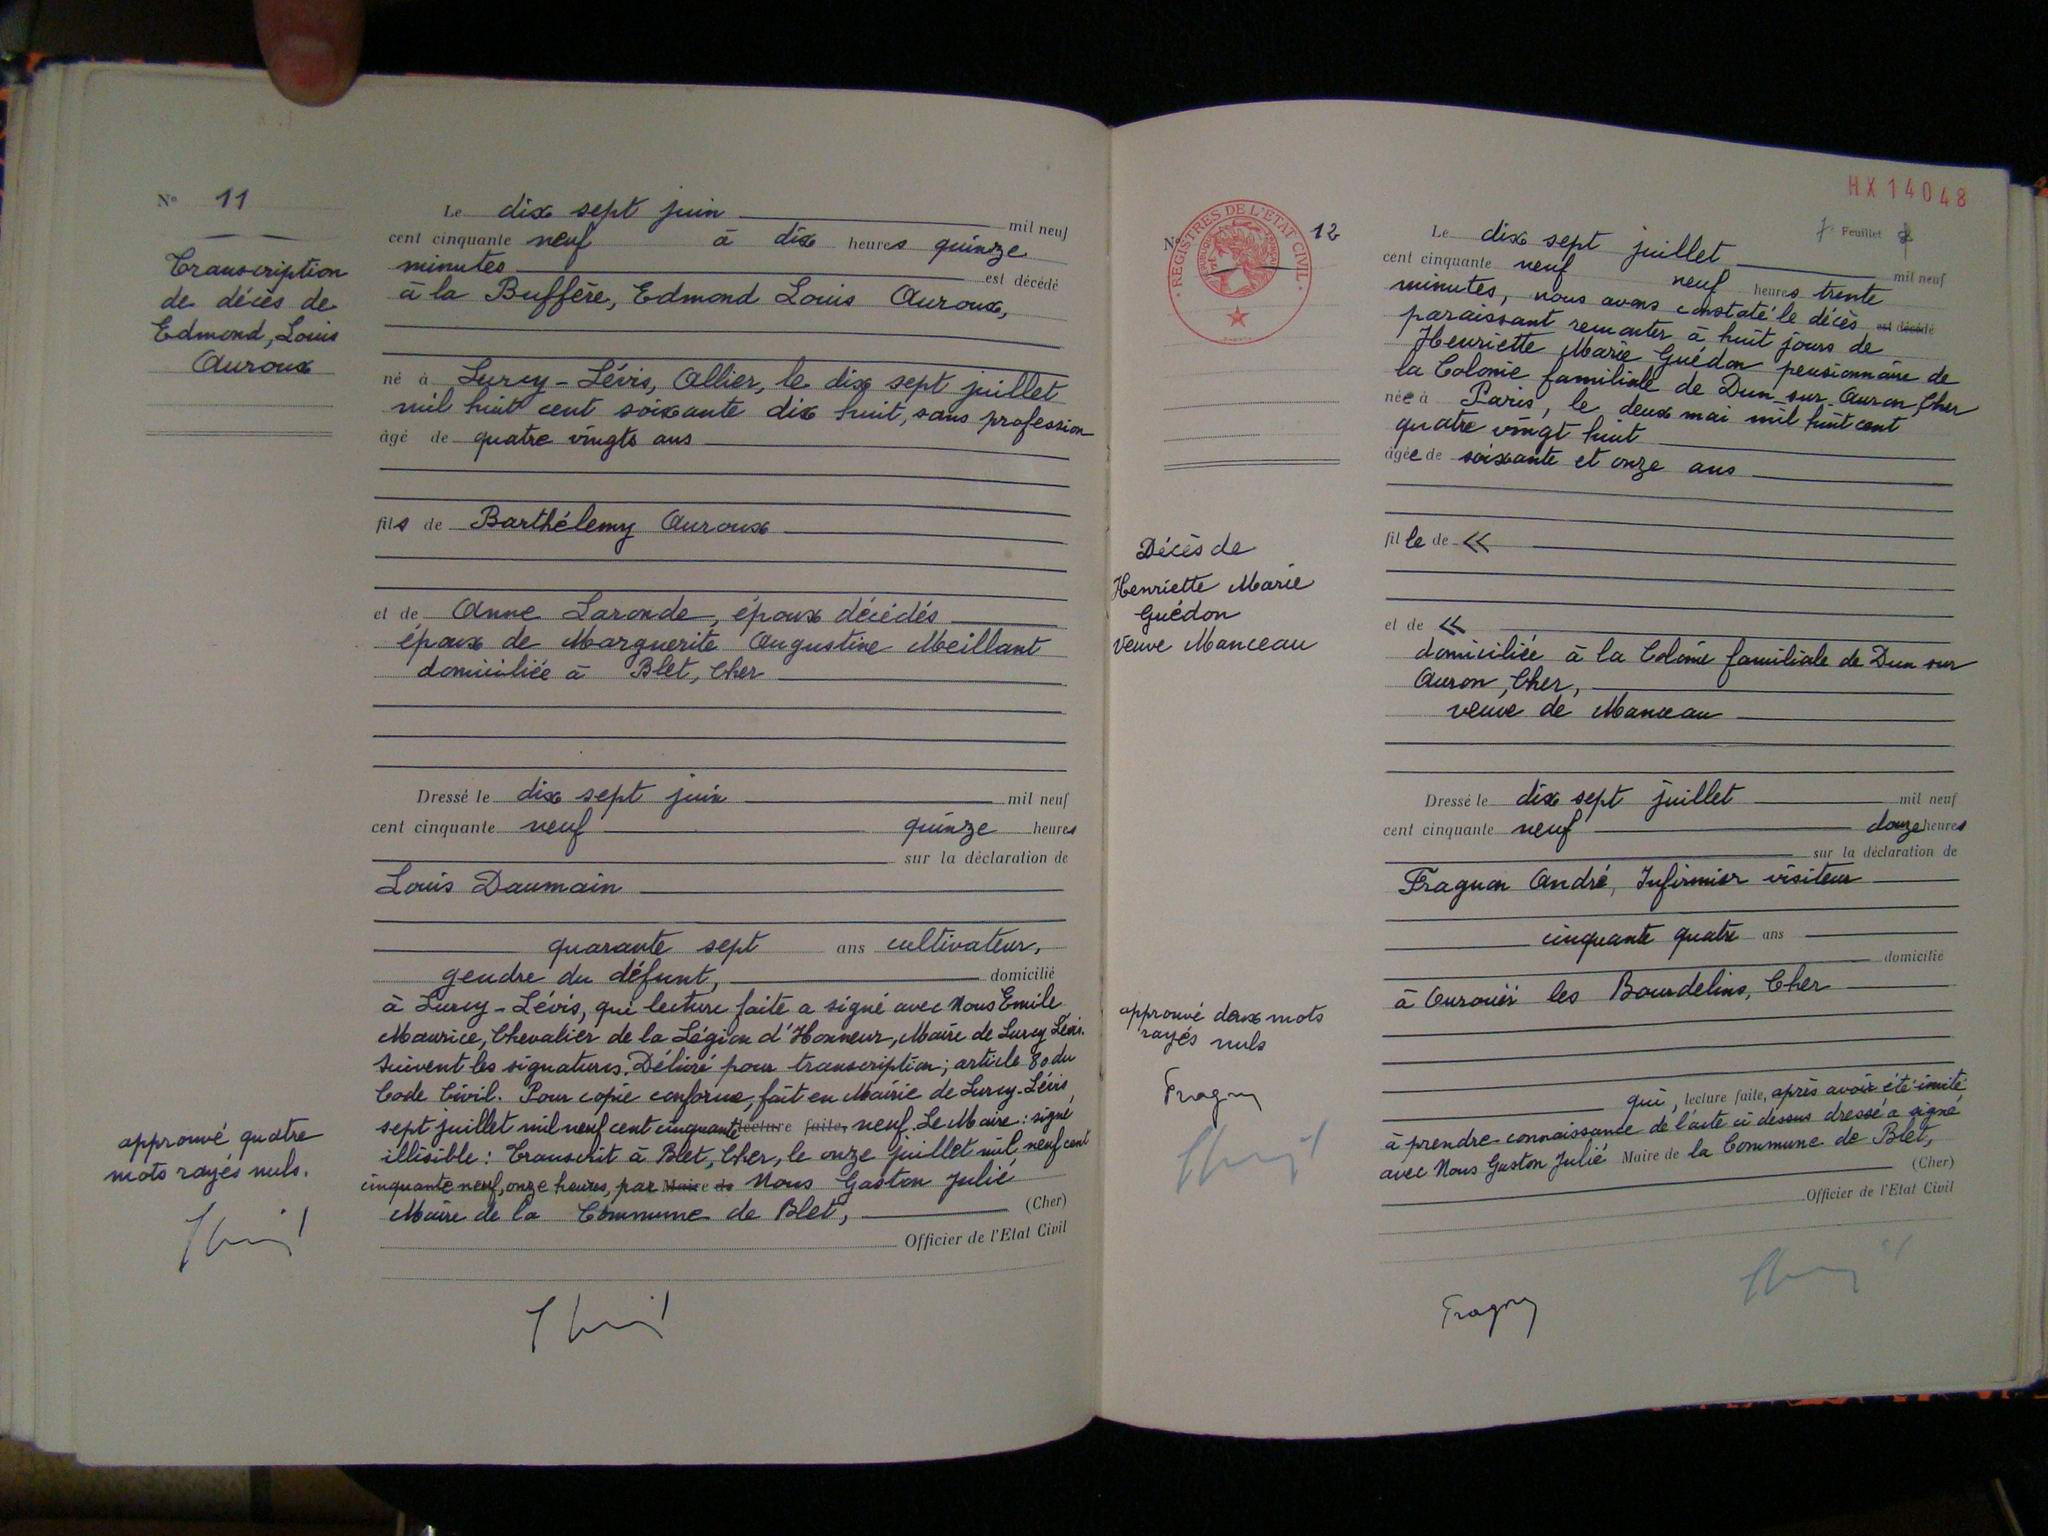 N° 11
Transcription
de décès de
Edmond, Louis
Auroux
Le dix sept juin mil neuf
cent cinquante neuf à dix heures quinze
minutes est décédé
à la Buffère, Edmond Louis Auroux,
né à Lurcy-Lévis, Allier, le dix sept juillet
mil huit cent soixante dix huit, sans profession
âgé de quatre vingts ans
fils de Barthélemy Auroux
et de Anne Laronde, époux décédés
époux de Marguerite Augustine Meillant
domiciliée à Blet, Cher
Dressé le dix sept juin mil neuf
cent cinquante neuf quinze heures
sur la déclaration de
Louis Daumain
quarante sept ans cultivateur,
gendre du défunt, domicilié
à Lurcy-Lévis, qui lecture faite a signé avec Nous Emile
Maurice, Chevalier de la Légion d'Honneur, Maire de Lurcy Lévis.
Suivent les signatures. Délivré pour transcription; article 80 du
Code Civil. Pour copie conforme, fait en Mairie de Lurcy-Lévis,
sept juillet mil neuf cent cinquante lecture faite, neuf. Le Maire: signé
illisible: Transcrit à Blet, Cher, le onze juillet mil neuf cent
cinquante neuf, onze heures, par Maire de Nous Gaston Julié
Maire de la Commune de Blet, (Cher)
Officier de l'Etat Civil
approuvé quatre
mots rayés nuls.
HX14048
Feuillet
REGISTRES DE L'ETAT CIVIL
N° 12
Décès de
Henriette Marie
Guédon
Veuve Manceau
Le dix sept juillet mil neuf
cent cinquante neuf neuf heures trente
minutes, nous avons constaté le décès est décédé
paraissant remonter à huit jours de
Henriette Marie Guédon pensionnaire de
la Colonie familiale de Dun-sur-Auron, Cher
née à Paris, le deux mai mil huit cent
quatre vingt huit
âgée de soixante et onze ans
fille de «
et de «
domiciliée à la Colonie familiale de Dun sur
Auron, Cher,
veuve de Manceau
Dressé le dix sept juillet mil neuf
cent cinquante neuf douze heures
sur la déclaration de
André, Infirmier visiteur
cinquante quatre ans
domicilié
à Ourouër les Bourdelins, Cher
qui, lecture faite, après avoir été invité
à prendre connaissance de l'acte ci dessus dressé a signé
avec Nous Gaston Julié Maire de la Commune de Blet,
(Cher)
Officier de l'Etat Civil
approuvé deux mots
rayés nuls